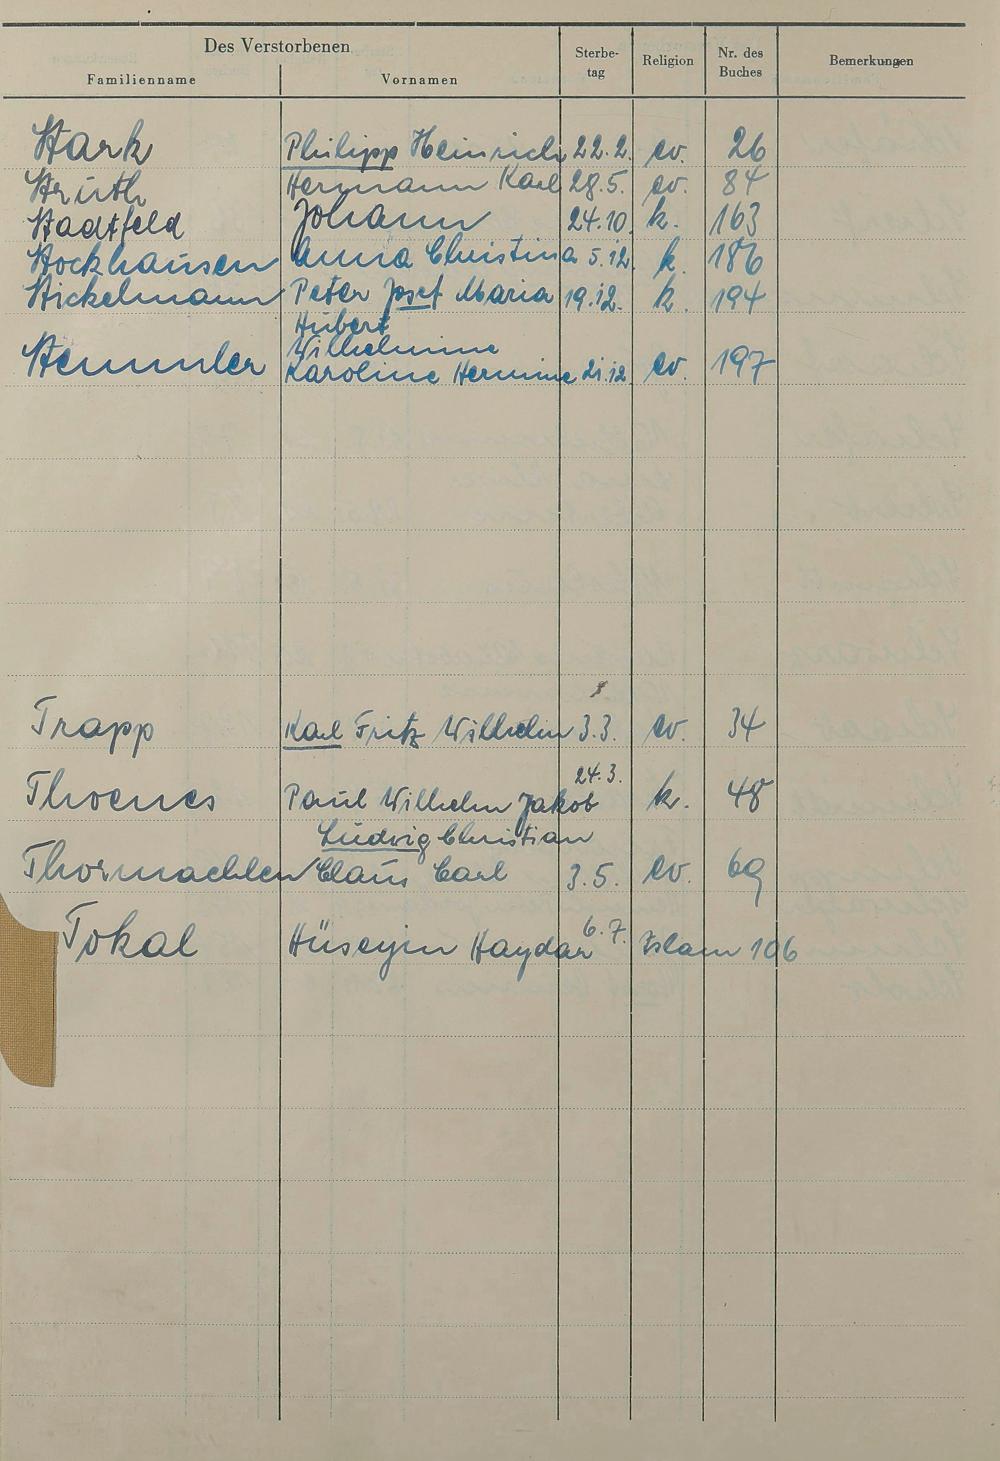 Des Verstorbenen
Familienname Vornamen Sterbe-tag Religion Nr. des Buches Bemerkungen
Stark Philipp Heinrich 22.2. ev. 26
Strüth Hermann Karl 28.5. ev. 84
Stadtfeld Johann 24.10. k. 163
Stockhausen Anna Christina 5.12. k. 186
Stickelmann Peter Josef Maria 19.12. k. 194
Hubert
Wilhelmine
Stemmler Karoline Hermine 21.12. ev. 197
Trapp Karl Fritz Wilhelm 3.3. ev. 34
Thoenes Paul Wilhelm Jakob 24.3. k. 48
Ludwig Christian
Thormaehlen Claus Carl 3.5. ev. 69
Tokal Hüseyin Haydar 6.7. Islam 106